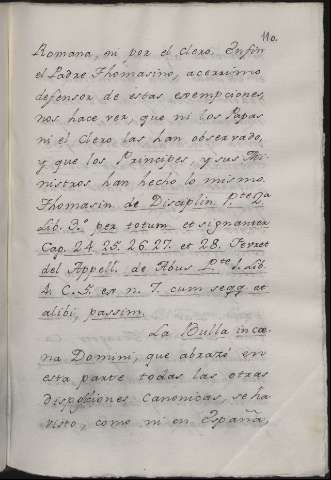 110.
Romana, ni por el clero. Enfin
el Padre Thomasino, acerrimo
defensor de estas exempciones,
nos hace ver, que ni los Papas
ni el Clero las han observado,
y que los Principes, y sus Mi-
nistros han hecho lo mismo.
Thomasin de Disciplin P.te 2.a
Lib. 3.o per totum et signanter
Cap. 24. 25. 26. 27. et 28. Fevret
del Appell. de Abus P.te 1. Lib.
4. C. 5. ex n. 7. cum seqq et
alibi, passim.
La Bulla in cœ-
na Domini, que abrazó en
esta parte todas las otras
disposiciones canonicas, se ha
visto, como ni en España,